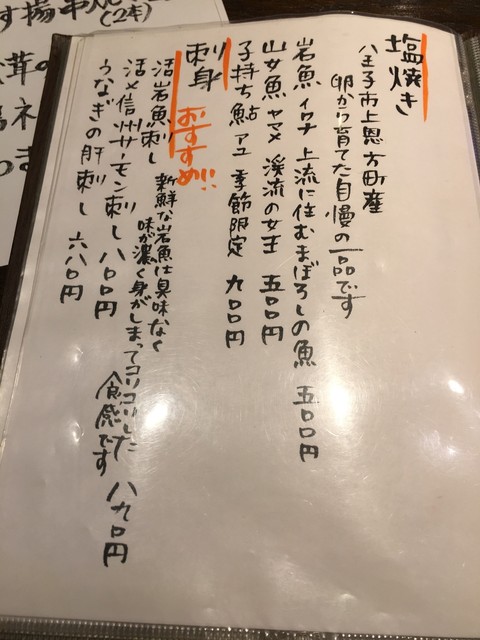 塩焼き
八王子市上恩方町産
卵から育てた自慢の一品です
岩魚 イワナ 上流に住むまぼろしの魚 五〇〇円
山女魚 ヤマメ 渓流の女王 五〇〇円
子持ち鮎 アユ 季節限定 九〇〇円
刺身 おすすめ!!
活岩魚刺し 新鮮な岩魚は臭味なく
味が濃く身がしまってコリコリした
食感です 八九〇円
活〆信州サーモン刺し 八〇〇円
うなぎの肝刺し 六八〇円
(2本)